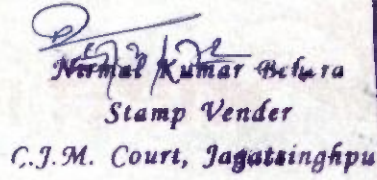 Nirmal Kumar Behara
Stamp Vender
C.J.M. Court, Jagatsinghpu